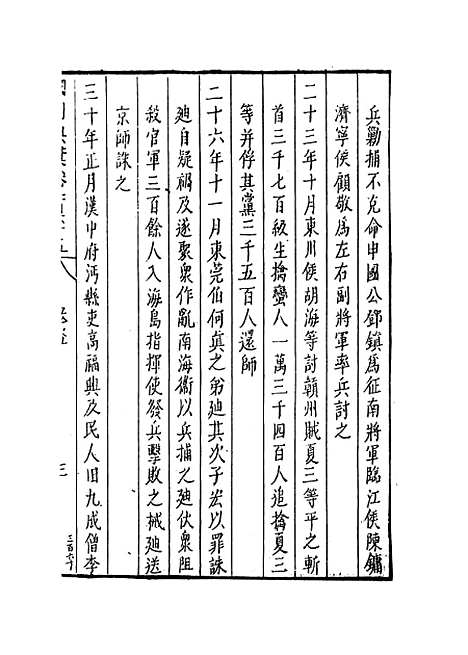 兵勦捕不克命申國公鄧鎮爲征南將軍臨江侯陳鏞
濟寧侯顧敬爲左右副將軍率兵討之
二十三年十月東川侯胡海等討贛州賊夏三等平之斬
首三千七百級生擒蠻人一萬三千四百人追擒夏三
等并俘其黨三千五百人還師
二十六年十一月東莞伯何真之弟廸其次子宏以罪誅
廸自疑禍及遂聚衆作亂南海衞以兵捕之廸伏衆阻
殺官軍三百餘人入海島指揮使發兵擊敗之械廸送
京師誅之
三十年正月漢中府沔縣吏高福興及民人田九成僧李
三